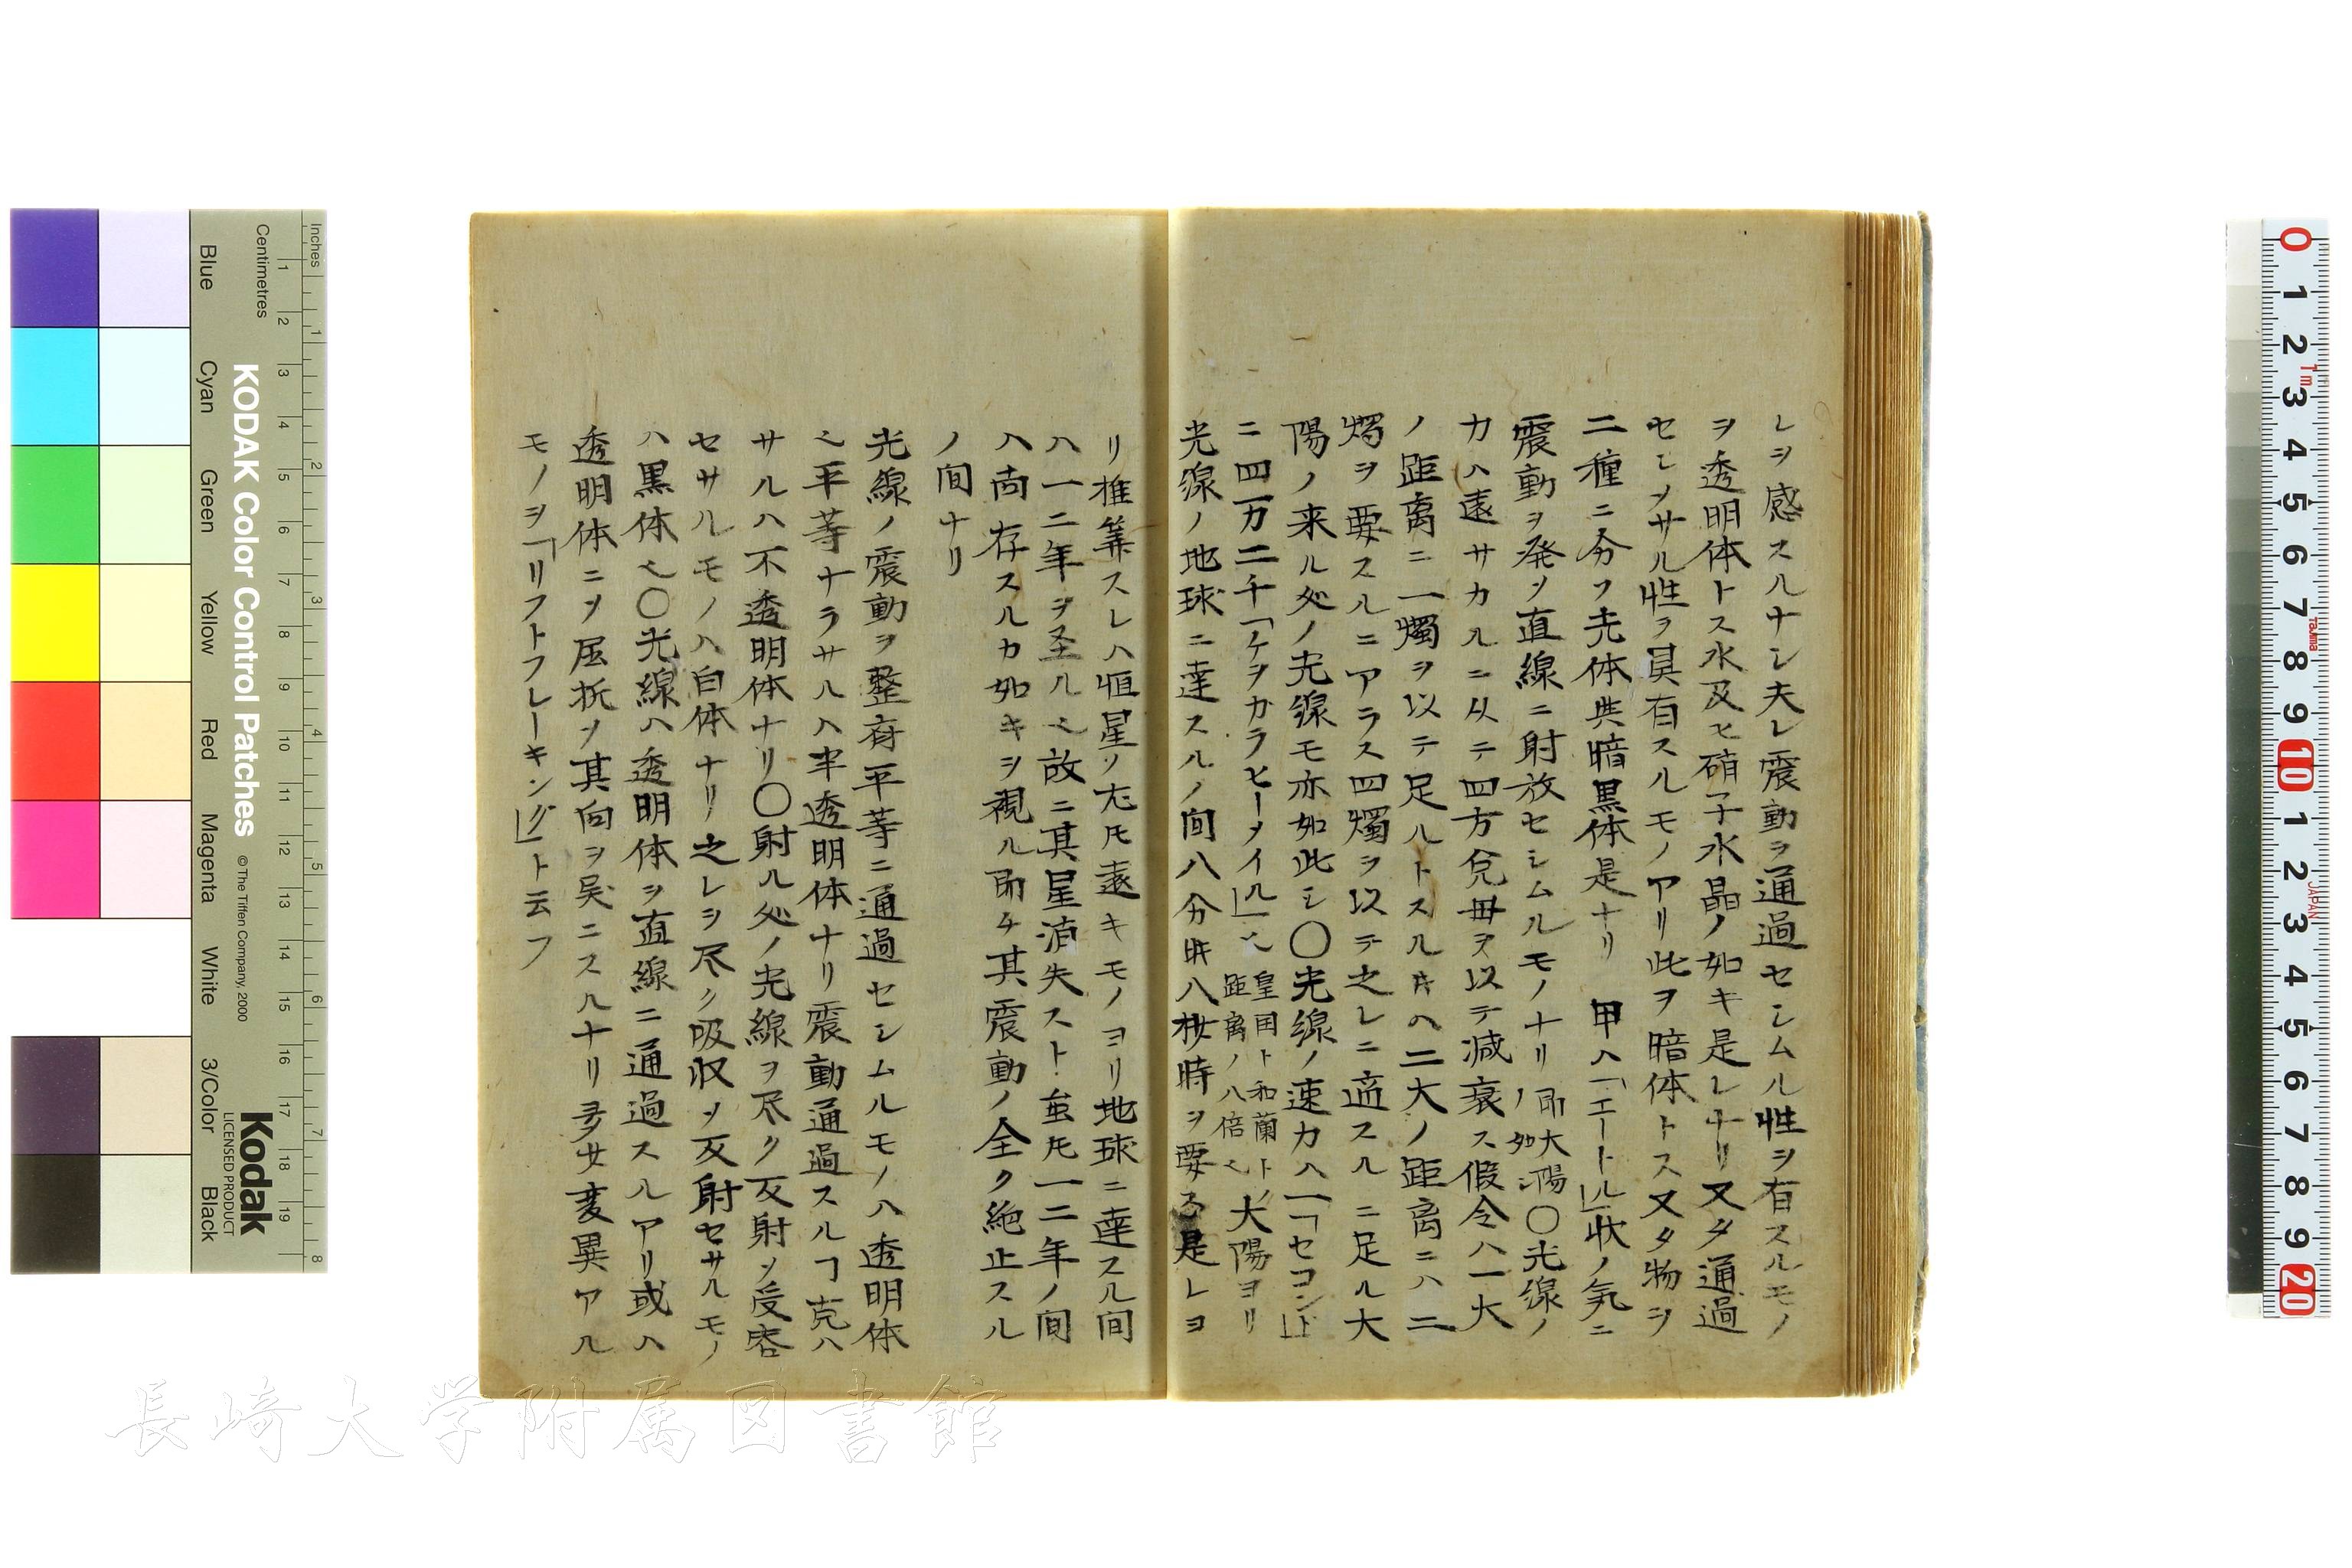 レヲ感スルナシ夫レ震動ヲ通過セシムル性ヲ有スルモノ
ヲ透明体トス水及ヒ硝子水晶ノ如キ是レナリ又タ通過
セシメサル性ヲ具有スルモノアリ此ヲ暗体トス又タ物ヲ
二種ニ分ツ光体与暗黒体是ナリ 甲ハ「エートル」状ノ気ニ
震動ヲ発シ直線ニ射放セシムルモノナリ即大陽ノ如シ〇光線ノ
力ハ遠サカルニ从テ四方免毎ヲ以テ減衰ス假令ハ一大
ノ距离ニ一燭ヲ以テ足ルトスル時ハ二大ノ距离ニハ二
燭ヲ要スルニアラス四燭ヲ以テ之レニ適スルニ足ル大
陽ノ来ル処ノ光線モ亦如此シ〇光線ノ速力ハ一「セコンド」
ニ四万二千「ケヲガラヒーメイル」也 皇国ト和蘭トノ
距离ノ八倍也 大陽ヨリ
光線ノ地球ニ達スルノ間八分時八秒時ヲ要ス是レヨ
リ推筭スレハ恒星ノ尤モ遠キモノヨリ地球ニ達スル間
ハ一二年ヲ至ル也故ニ其星消失スト虽モ一二年ノ間
ハ尚存スルカ如キヲ視ル即チ其震動ノ全ク絶止スル
ノ間ナリ
光線ノ震動ヲ整斉平等ニ通過セシムルモノハ透明体
也平等ナラサルハ半透明体ナリ震動通過スルヿ克ハ
サルハ不透明体ナリ〇射ル処ノ光線ヲ尽ク反射シ受容
セサルモノハ白体ナリ之レヲ尽ク吸収シ反射セサルモノ
ハ黒体也〇光線ハ透明体ヲ直線ニ通過スルアリ或ハ
透明体ニシ屈折シ其向ヲ异ニスルナリ多少変異アル
モノヲ「リフトフレーキング」ト云フ
Inches
Centimetres
KODAK Color Control Patches
© The Tiffen Company, 2000
Kodak
LICENSED PRODUCT
Blue
Cyan
Green
Yellow
Red
Magenta
White
3/Color
Black
1 2 3 4 5 6 7 8 9 10 11 12 13 14 15 16 17 18 19
1 2 3 4 5 6 7 8
0 1 2 3 4 5 6 7 8 9 10 1 2 3 4 5 6 7 8 9 20
1m
Tajima
JAPAN
長崎大学附属図書館